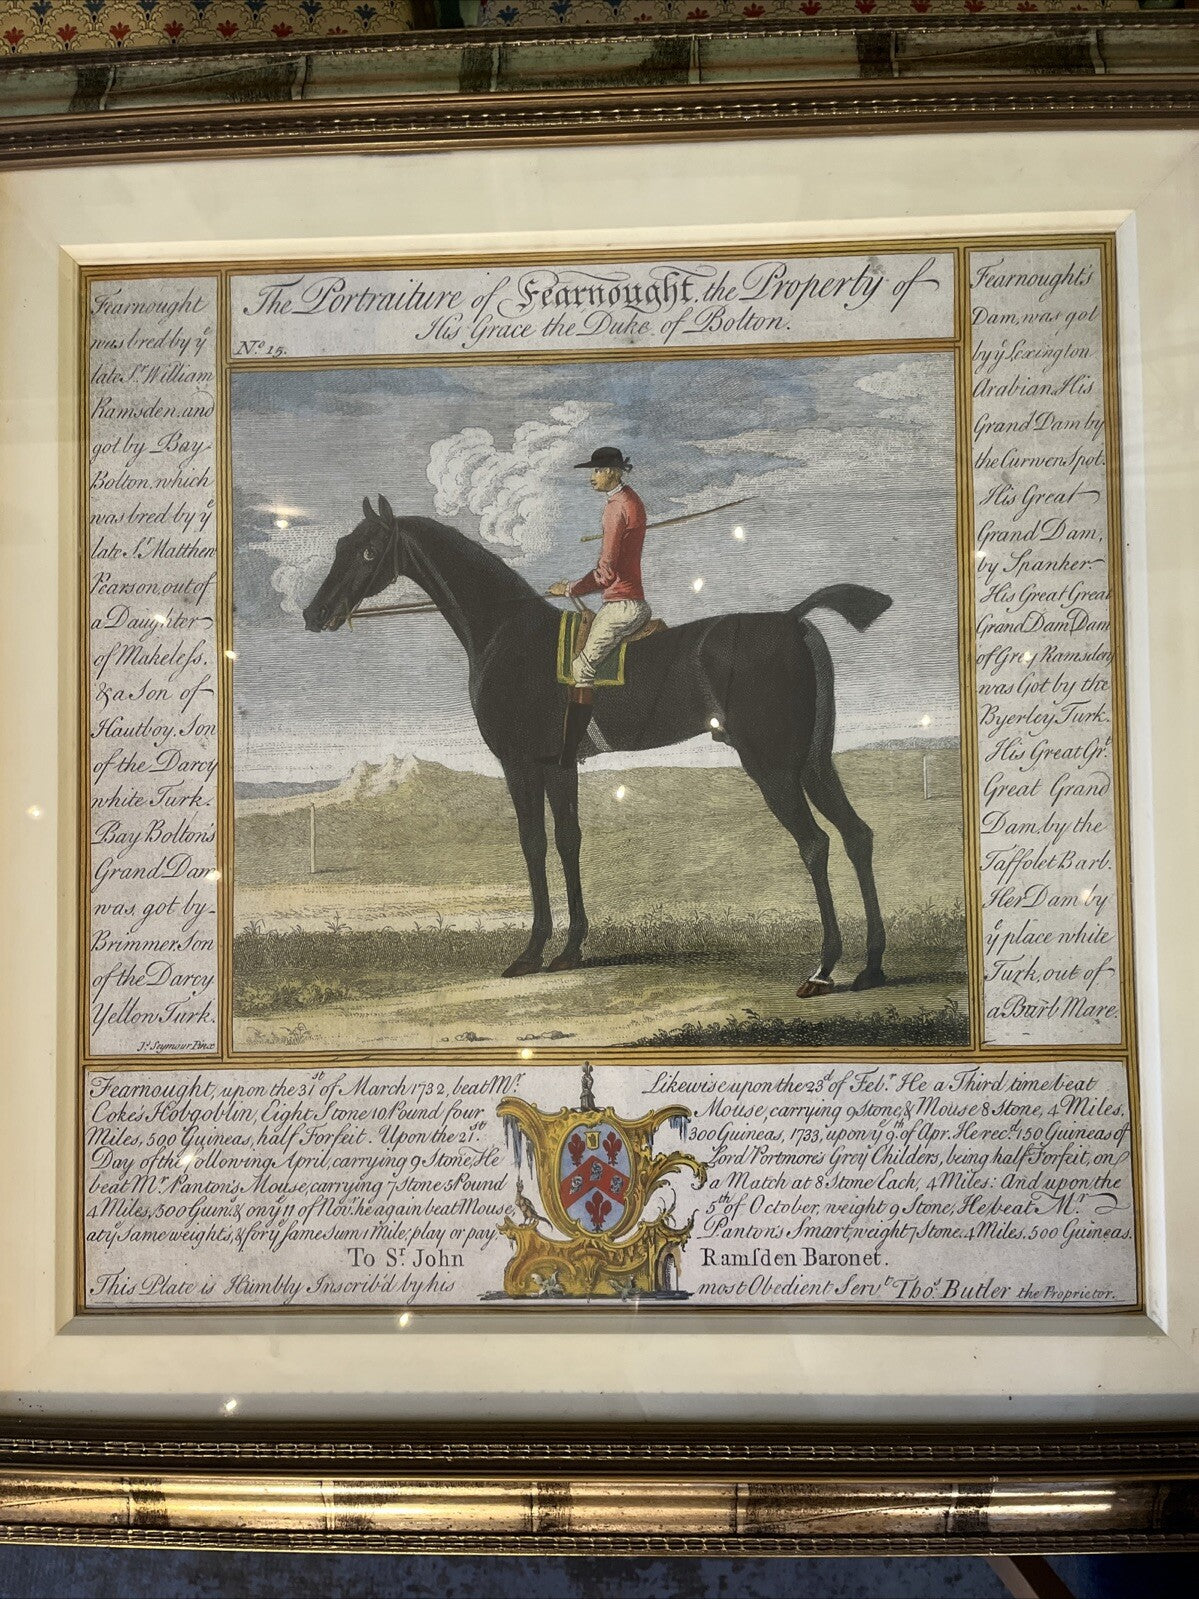 The Portraiture of Fearnought, the Property of
His Grace the Duke of Bolton.
Nº 15.
Fearnought
was bred by yᵉ
late Sʳ William
Ramsden, and
got by Bay
Bolton, which
was bred by yᵉ
late Sʳ Matthew
Pearson, out of
a Daughter
of Makeleſs,
& a Son of
Hautboy, Son
of the Darcy
white Turk.
Bay Bolton's
Grand Dam
was got by
Brimmer, Son
of the Darcy
Yellow Turk.
Jˢ Seymour Pinx
Fearnought's
Dam, was got
by yᵉ Lexington
Arabian, His
Grand Dam by
the Curwen Spot.
His Great
Grand Dam,
by Spanker
His Great Great
Grand Dam, Dam
of Grey Ramsden
was Got by the
Byerley Turk.
His Great Grᵗ
Great Grand
Dam, by the
Taffolet Barb.
Her Dam by
yᵉ place white
Turk, out of
a Barb Mare.
Fearnought, upon the 31ˢᵗ of March 1732, beat Mʳ
Coke's Hobgoblin, Eight Stone 10 Pound four
Miles, 500 Guineas, half Forfeit. Upon the 21ˢᵗ
Day of the following April, carrying 9 Stone, He
beat Mʳ Panton's Mouse, carrying 7 Stone 5 Pound
4 Miles, 500 Guin.ˢ & on yᵉ 11 of Novʳ he again beat Mouse,
at yᵉ Same weights, & for yᵉ same Sum 1 Mile, play or pay
Likewise upon the 23ᵈ of Febʳ He a Third time beat
Mouse, carrying 9 Stone, & Mouse 8 Stone, 4 Miles,
300 Guineas, 1733, upon yᵉ 9ᵗʰ of Apr. He recᵈ 150 Guineas of
Lord Portmore's Grey Childers, being half Forfeit, on
a Match at 8 Stone Each, 4 Miles: And upon the
5ᵗʰ of October, weight 9 Stone, He beat Mʳ
Panton's Smart, weight 7 Stone. 4 Miles. 500 Guineas.
To Sʳ John Ramſden Baronet.
This Plate is Humbly Inscrib'd by his most Obedient Servᵗ Thoˢ Butler the Proprietor.